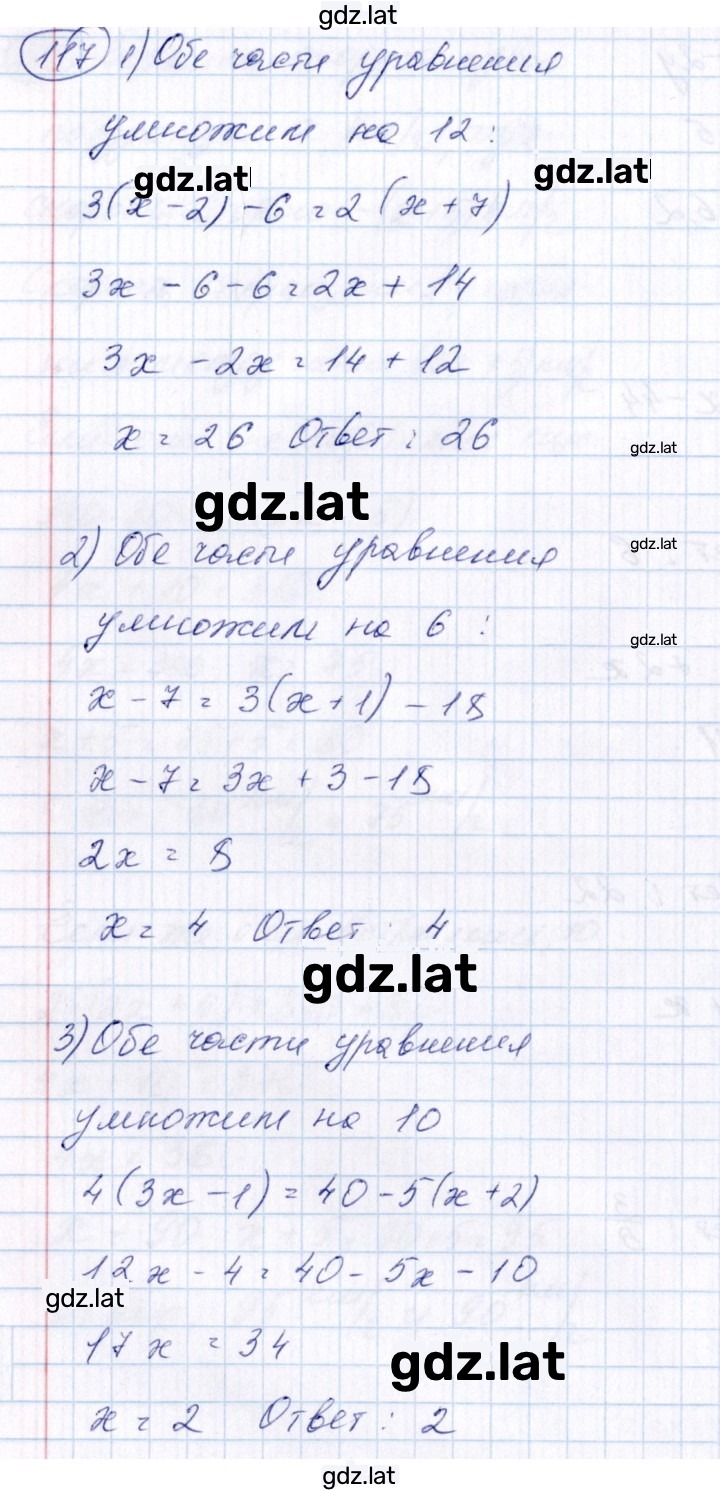 gdz.lat
117 1) Обе части уравнения
умножим на 12:
gdz.lat gdz.lat
3(x-2)-6=2(x+7)
3x-6-6=2x+14
3x-2x=14+12
x=26 Ответ: 26
gdz.lat
gdz.lat
2) Обе части уравнения
gdz.lat
умножим на 6:
gdz.lat
x-7=3(x+1)-18
x-7=3x+3-18
2x=8
x=4 Ответ: 4
gdz.lat
3) Обе части уравнения
умножим на 10
4(3x-1)=40-5(x+2)
12x-4=40-5x-10
gdz.lat
17x=34
gdz.lat
x=2 Ответ: 2
gdz.lat